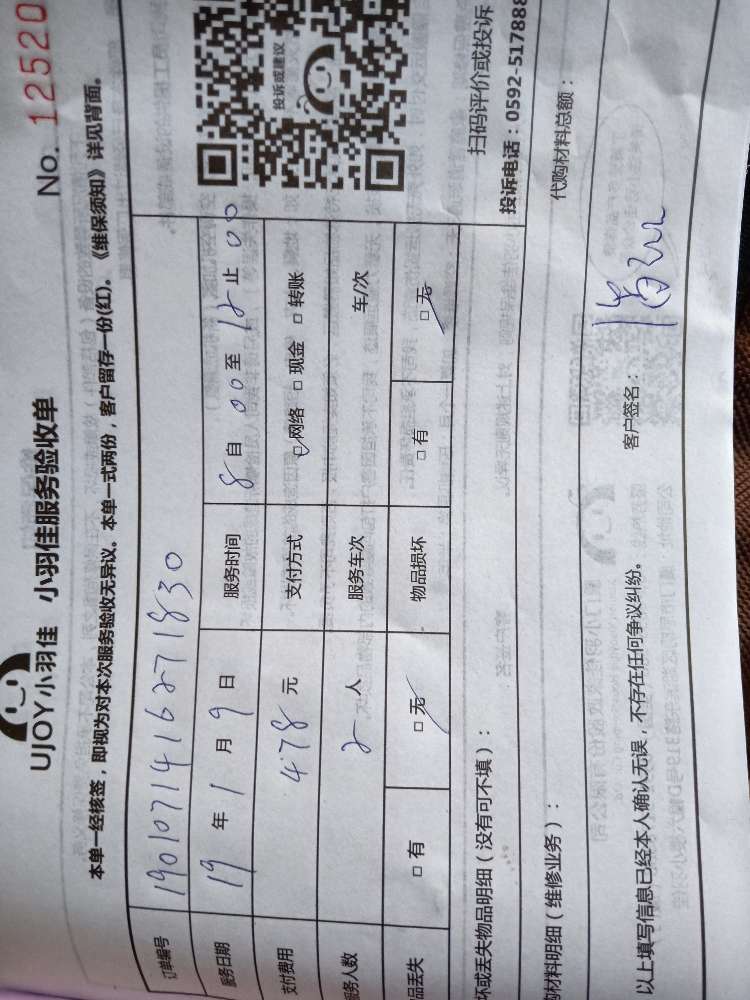 UJOY小羽佳 小羽佳服务验收单
No. 12520
本单一经核签，即视为对本次服务验收无异议。本单一式两份，客户留存一份(红)。《维保须知》详见背面。
订单编号 190107141627 1830
服务日期 19 年 1 月 9 日 服务时间 8 自 00 至 12 止 00
支付费用 478 元 支付方式 □网络 □现金 □转账
服务人数 2 人 服务车次 车/次
品丢失 □有 □无 物品损坏 □有 □无
投诉或建议
扫码评价或投诉
投诉电话：0592-517888
坏或丢失物品明细（没有可不填）：
购材料明细（维修业务）： 代购材料总额：
以上填写信息已经本人确认无误，不存在任何争议纠纷。 客户签名：